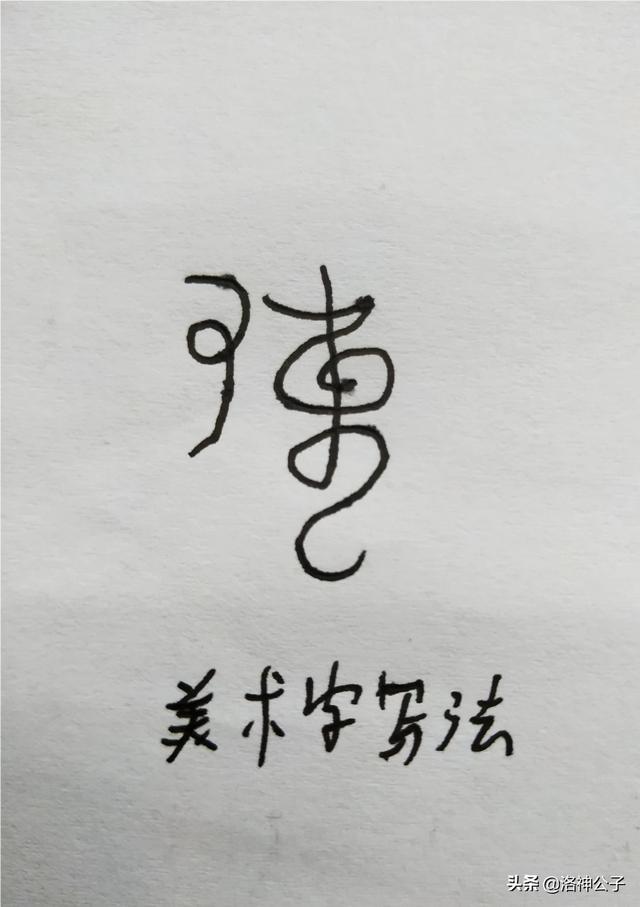 陳
美术字写法
头条 @洛神公子